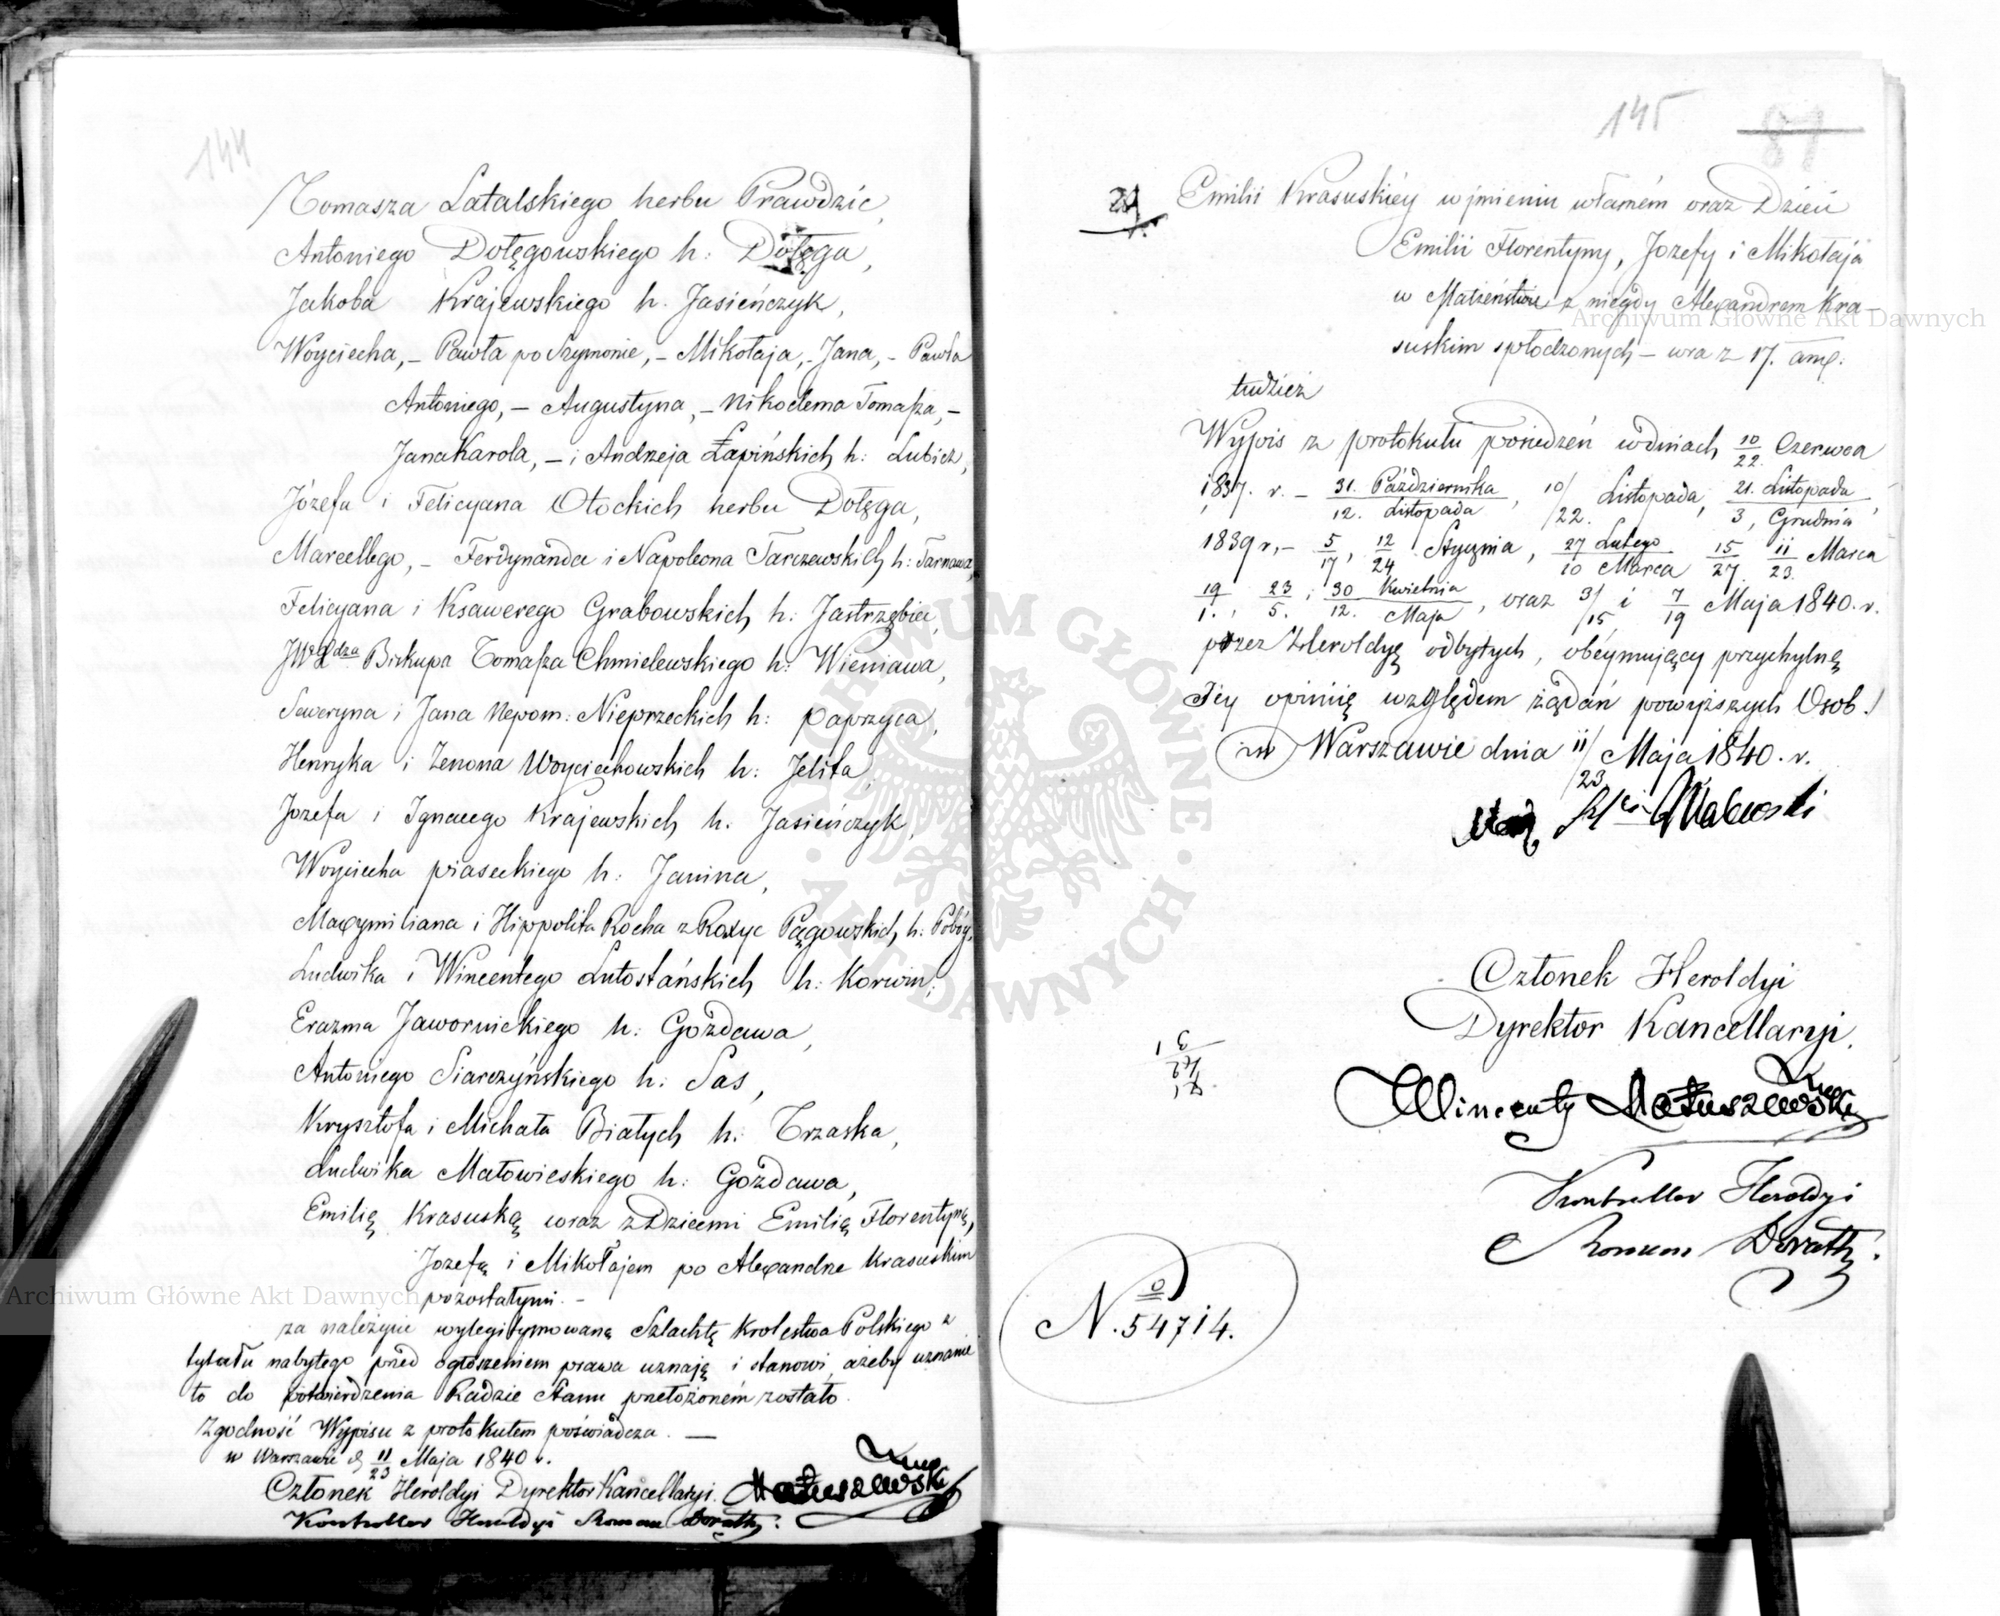 144
Tomasza Latalskiego herbu Prawdzic,
Antoniego Dołęgowskiego h: Dołęga,
Jakoba Krajewskiego h. Jasieńczyk,
Woyciecha, – Pawła po Szymonie, – Mikołaja, – Jana, – Pawła
Antoniego, – Augustyna, – Nikodema Tomasza, –
Jana Karola, – i Andrzeja Łapińskich h: Lubicz,
Józefa i Felicyana Otockich herbu Dołęga,
Marcellego, – Ferdynanda i Napoleona Tarczewskich h: Tarnawa,
Felicyana i Ksawerego Grabowskich h: Jastrzębiec,
Biskupa Tomasza Chmielewskiego h: Wieniawa,
Seweryna i Jana Nepom: Nieprzeckich h: Paprzyca,
Henryka i Zenona Woyciechowskich h: Jelita,
Jozefa i Ignacego Krajewskich h. Jasieńczyk,
Woyciecha Piaseckiego h: Janina,
Maxymiliana i Hippolita Rocha z Roxyc Pągowskich h: Pobóg,
Ludwika i Wincentego Lutostańskich h: Korwin,
Erazma Jawornickiego h: Gozdawa,
Antoniego Siarczyńskiego h: Sas,
Krysztofa i Michała Białych h: Trzaska,
Ludwika Małowieskiego h: Gozdawa,
Emilię Krasuską wraz z Dziecmi Emilią Florentyną,
Jozefą i Mikołajem po Alexandrze Krasuskim
pozostałymi. –
za należycie wylegitymowaną Szlachtę Krolestwa Polskiego z
tytułu nabytego przed ogłoszeniem prawa uznają i stanowi, ażeby uznanie
to do potwierdzenia Radzie Stanu przełożoném zostało.
Zgodność Wypisu z protokułem poświadcza. —
w Warszawie d. 11/23 Maja 1840 r.
Członek Heroldyi Dyrektor Kancellaryi. Matuszewski
Kontroller Heroldyi Roman
145
87
Emilii Krasuskiéy w jmieniu własném oraz Dzieci
Emilii Florentyny, Jozefy i Mikołaja
w Małżeństwie z niegdy Alexandrem Kra-
suskim spłodzonych – wraz 17. anx:
tudzież
Wypis z protokułu posiedzeń w dniach 10/22 Czerwca
1837. r. – 31. Października/12. Listopada, 10/22. Listopada, 21. Listopada/3, Grudnia,
1839 r, – 5/17, 12/24 Stycznia, 27 Lutego/10 Marca 15/27 11/23. Marca
19/1., 23/5. i 30 Kwietnia/12. Maja, oraz 3/15 i 7/19 Maja 1840. r.
przez Heroldyę odbytych, obéymujący przychylną
Jéy opiniię względem żądań powyższych Osob.
w Warszawie dnia 11/23 Maja 1840. r.
Członek Heroldyi
Dyrektor Kancellaryi.
Wincenty Matuszewski
Kontroller Heroldyi
Roman
No. 54714.
ARCHIWUM GŁÓWNE AKT DAWNYCH
Archiwum Główne Akt Dawnych
Archiwum Główne Akt Dawnych